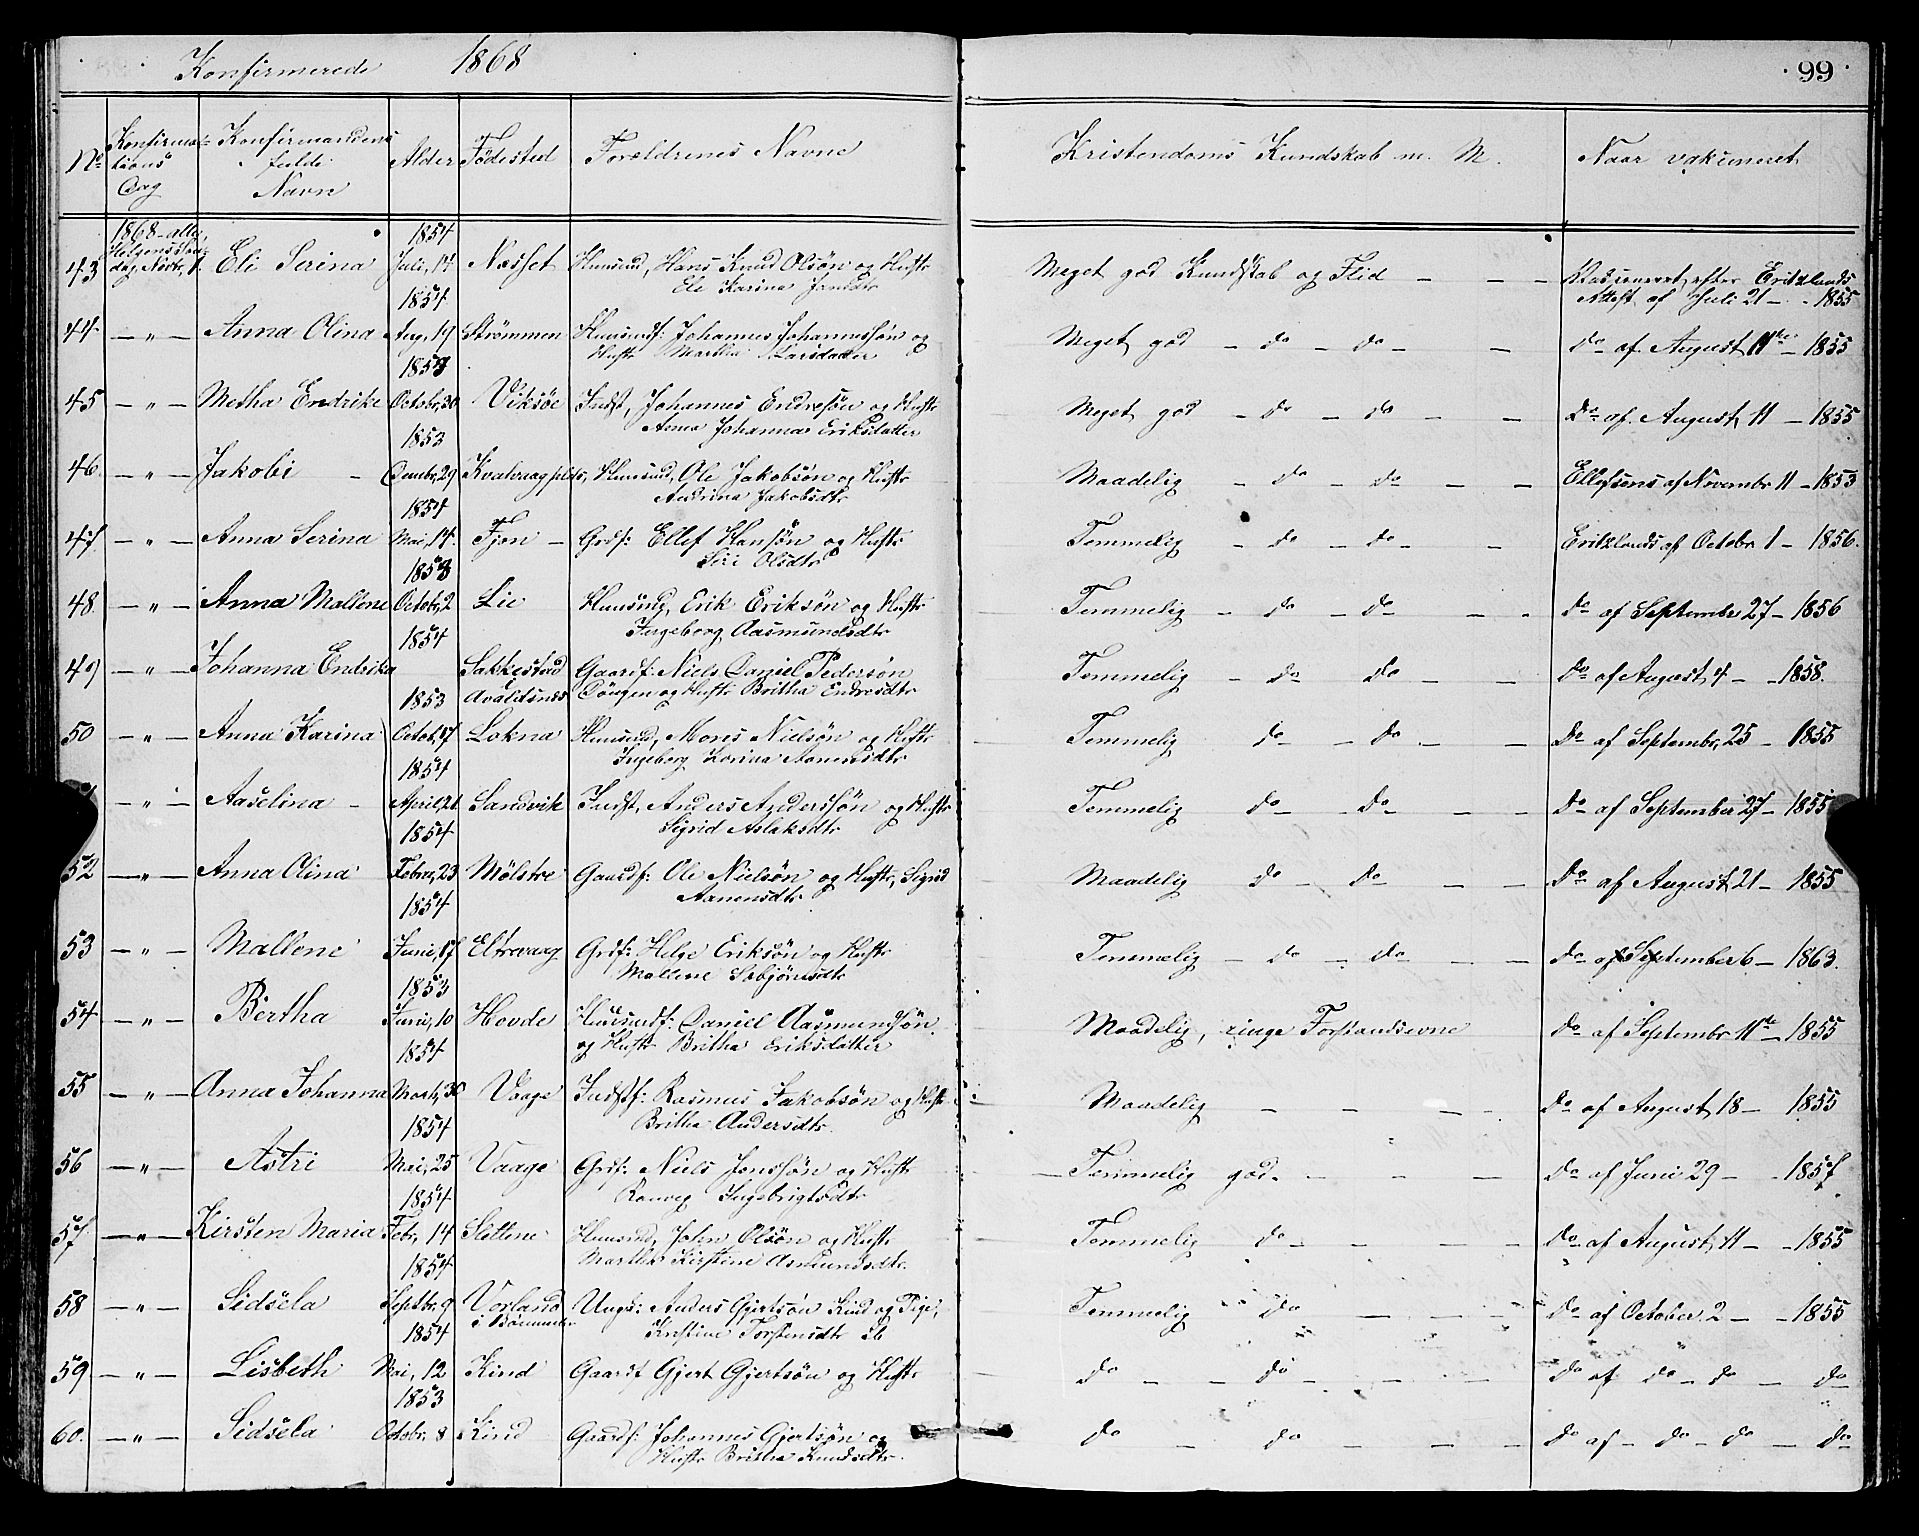 Konfirmerede 1868
99
No Konfirma- Konfirmandens Alder Födested Forældrenes Navne Kristendoms Kundskab m. M. Naar vakcineret
tions fulde
Dag Navn
1868 - alle 1854
43 Helgenssön- Eli Serina Juli, 14 Næsset Huusmd, Hans Knud Olsön og Hustr Meget god Kundskab og Flid — — Vaccineret efter Eriklands
dag, Novbr, 1. Ele Karina Attest af Juli 21 — 1855
1854
44 — " — Anna Olina Aug, 19 Strömmen Huusmdf: Johannes Johannessön og Meget god — do — do — — do af August 11te — 1855
Hustr Martha Larsdatter
1853
45 — " — Metha Endrike Octobr, 30 Viksöe Indst, Johannes Endresön og Hustr Meget god — do — do — — Do af August 11 — 1855
Anna Johanna Eriksdatter
1853
46. — " — Jakobi — Decembr, 29 Kvalvaag Huusmd, Ole Jakobsön og Hustr Maadelig — do — do — — Ellefsens af Novembr 11 — 1853
Andrina Jakobsdtr
1854
47 — " — Anna Serina Mai, 14. Fjon — Grdf: Ellef Hansön og Hustr Temmelig — do — do — — Eriklands af Octobr 1 — 1856.
Siri Olsdtr
1853
48. — " — Anna Mallene Octobr, 2 Lie Huusmd, Erik Eriksön og Hustr Temmelig — do — do — — Do af September 27 — 1856
Ingeborg Aasmundsdtr
1854
49 — " — Johanna Endrika Sakkestad Gaardf: Niels Daniel Pedersön Temmelig — do do — — Do af August 4 — 1858.
i Avaldsnes og Hustr Britha Endresdtr
1853
50 — " — Anna Karina Octob, 17 Lokna Huusmd, Mons Nielsön og Hustr Temmelig do — do — — Do af Septembr, 25 — 1855
Ingeborg Aanensdtr
1854
— " — Aaselina — April, 21 Sandvik Indst, Anders Anderssön og Hustr Temmelig do — do — — Do af September 27 — 1855
Sigrid Aslaksdtr
1854
52 — " — Anna Olina Febru, 23 Mölstre Gaardf: Ole Nielsön og Hustr, Sigrid Maadelig do — do — — Do af August 21 — 1855
Aanensdtr
1854
53 — " — Mallene Juni, 17 Eltravaag Grdf: Helge Eriksön og Hustr Temmelig — do — do — — Do af September 6 — 1863.
Mallene
1853
54 — " — Bertha Juni, 10 Hovde Huusmdf: Daniel Aasmundsön Maadelig, ringe Forstandsevne Do af Septembr 11te — 1855
og Hustr Britha Eriksdatter
1854
55 — " — Anna Johanna 30 Vaage Indstf: Rasmus Jakobsön og Hustr Maadelig — — — — Do af August 18 — 1855
Britha Andersdtr.
1854
56 — " — Astri Mai, 25 Vaage Grdf: Niels Jenssön og Hustr Temmelig god. — — — Do af Juni 29 — 1857
Ranveg Ingebrigtsdtr
1854
57 — " — Kirsten Maria Febr, 14 Slettene Huusmd, John Olsön og Hustr Temmelig do — — — — Do af August 11 — 1855
Martha Kirstine Asmundsdtr.
1854
58 — " — Sidsela Septbr, 9 Vorland Ungk: Anders Gjertsön Kind og Pige, Temmelig do — — — Do af October 2 — 1855
i Kristine Torstensdtr ib
1854
59 — " — Lisbeth Mai, 12 Kind Gaardf Gjert Gjertsön og Hustr Do — — do — — — Do af do — do — do
1853
60. — " — Sidsela Octobr, 8 Kind Gaardf: Johannes Gjertsön og Do — do — — — Do af — do — do — do
Hustr Britha Knudsdtr.